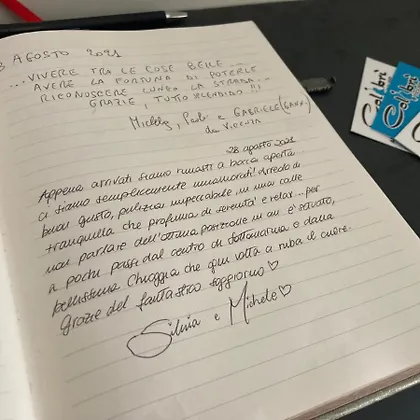 3 AGOSTO 2021
...VIVERE TRA LE COSE BELLE...
AVERE LA FORTUNA DI POTERLE
RICONOSCERE LUNGO LA STRADA...
GRAZIE, TUTTO SPLENDIDO!!!
Michela, Paolo e GABRIELE
da VICENZA
28 agosto 2021
Appena arrivati siamo rimasti a bocca aperta
ci siamo semplicemente innamorati! Arredo di
buon gusto, pulizia impeccabile, in una calle
tranquilla che profuma di serenità e relax... per
non parlare dell'ottima posizione in cui è situato,
a pochi passi dal centro di Sottomarina e dalla
bellissima Chioggia che ogni volta ci ruba il cuore.
Grazie del fantastico soggiorno ♡
Silvia e Michele ♡
Colibrì
Colibrì